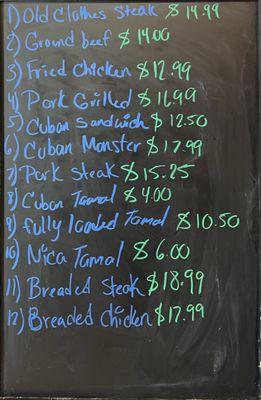 1) Old Clothes Steak $14.99
2) Ground beef $14.00
3) Fried Chicken $12.99
4) Pork Grilled $16.99
5) Cuban Sandwich $12.50
6) Cuban Monster $17.99
7) Pork Steak $15.25
8) Cuban Tamal $4.00
9) fully loaded Tamal $10.50
10) Nica Tamal $6.00
11) Breaded Steak $18.99
12) Breaded Chicken $17.99